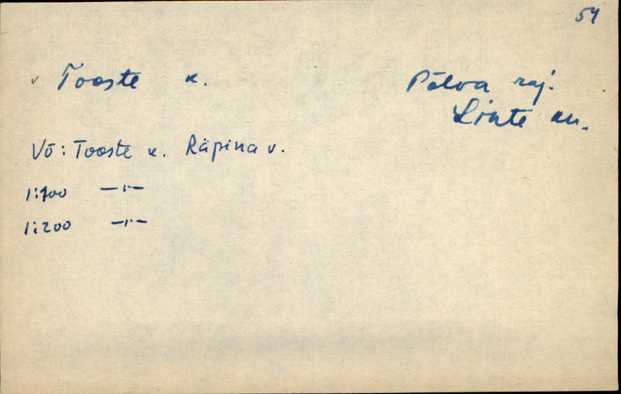 54
v Tooste k. Põlva raj.
Linte kn.
Võ: Tooste k. Räpina v.
1:100 —"—
1:200 —"—